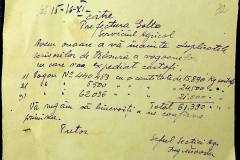 15-16-XI-
către
Prefectura Dolj
Serviciul Agricol
Avem onoare a vă înainta duplicatele
scrisorilor de trăsură a vagoanelor
cu care s'au expediat cartofi:
1) Vagon No. 440.493 cu o cantitate de 15.890 Kg cartofi
2) " 5500 " " 24.500 "
3) " 62.036 " " 21.000 "
Total 61.390
Vă rugăm să binevoiți a ne confirma
primirea.
Pretor
Șeful Secției Agr.
Ing.